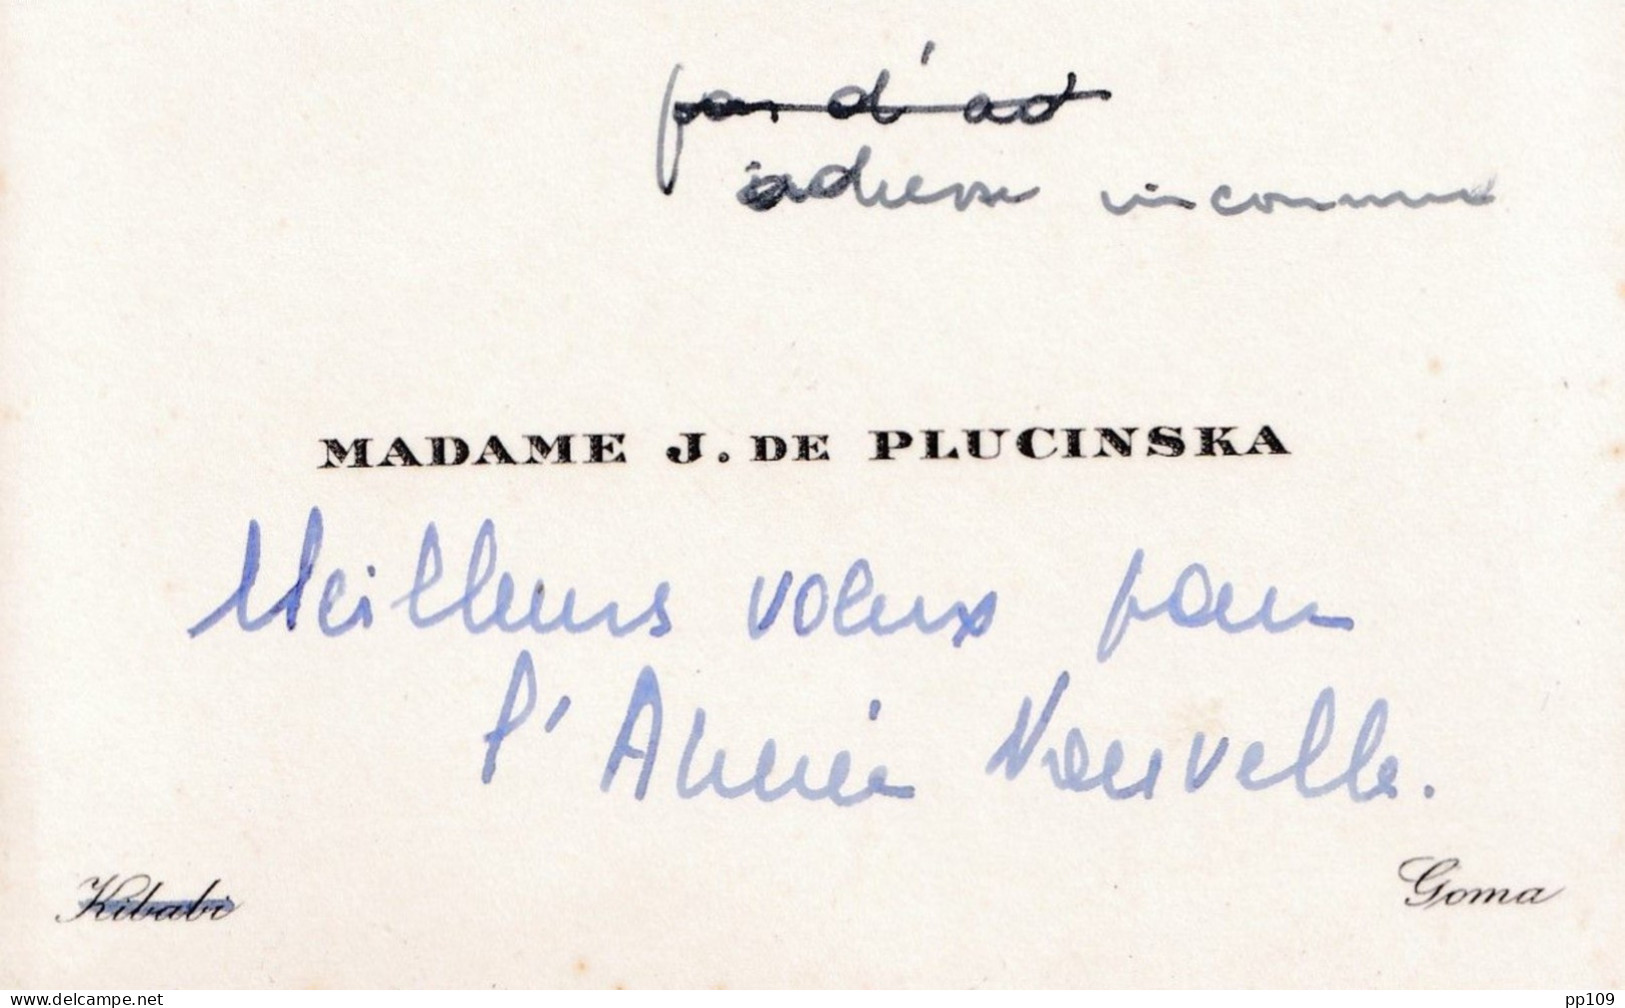 pas d'ad
adresse inconnue
MADAME J. DE PLUCINSKA
Meilleurs voeux pour
l'Année Nouvelle.
Kibabi Goma
www.delcampe.net pp109